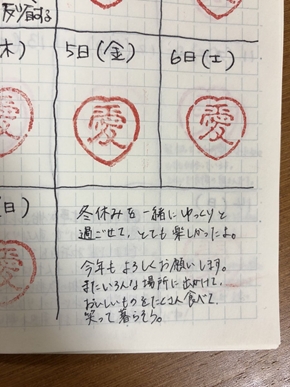 木)
5日(金)
6日(土)
愛
愛
愛
(日)
愛
冬休みを一緒にゆっくりと
過ごせて、とても楽しかったよ。
今年もよろしくお願いします。
またいろんな場所に出かけて、
おいしいものをたくさん食べて、
笑って暮らそう。